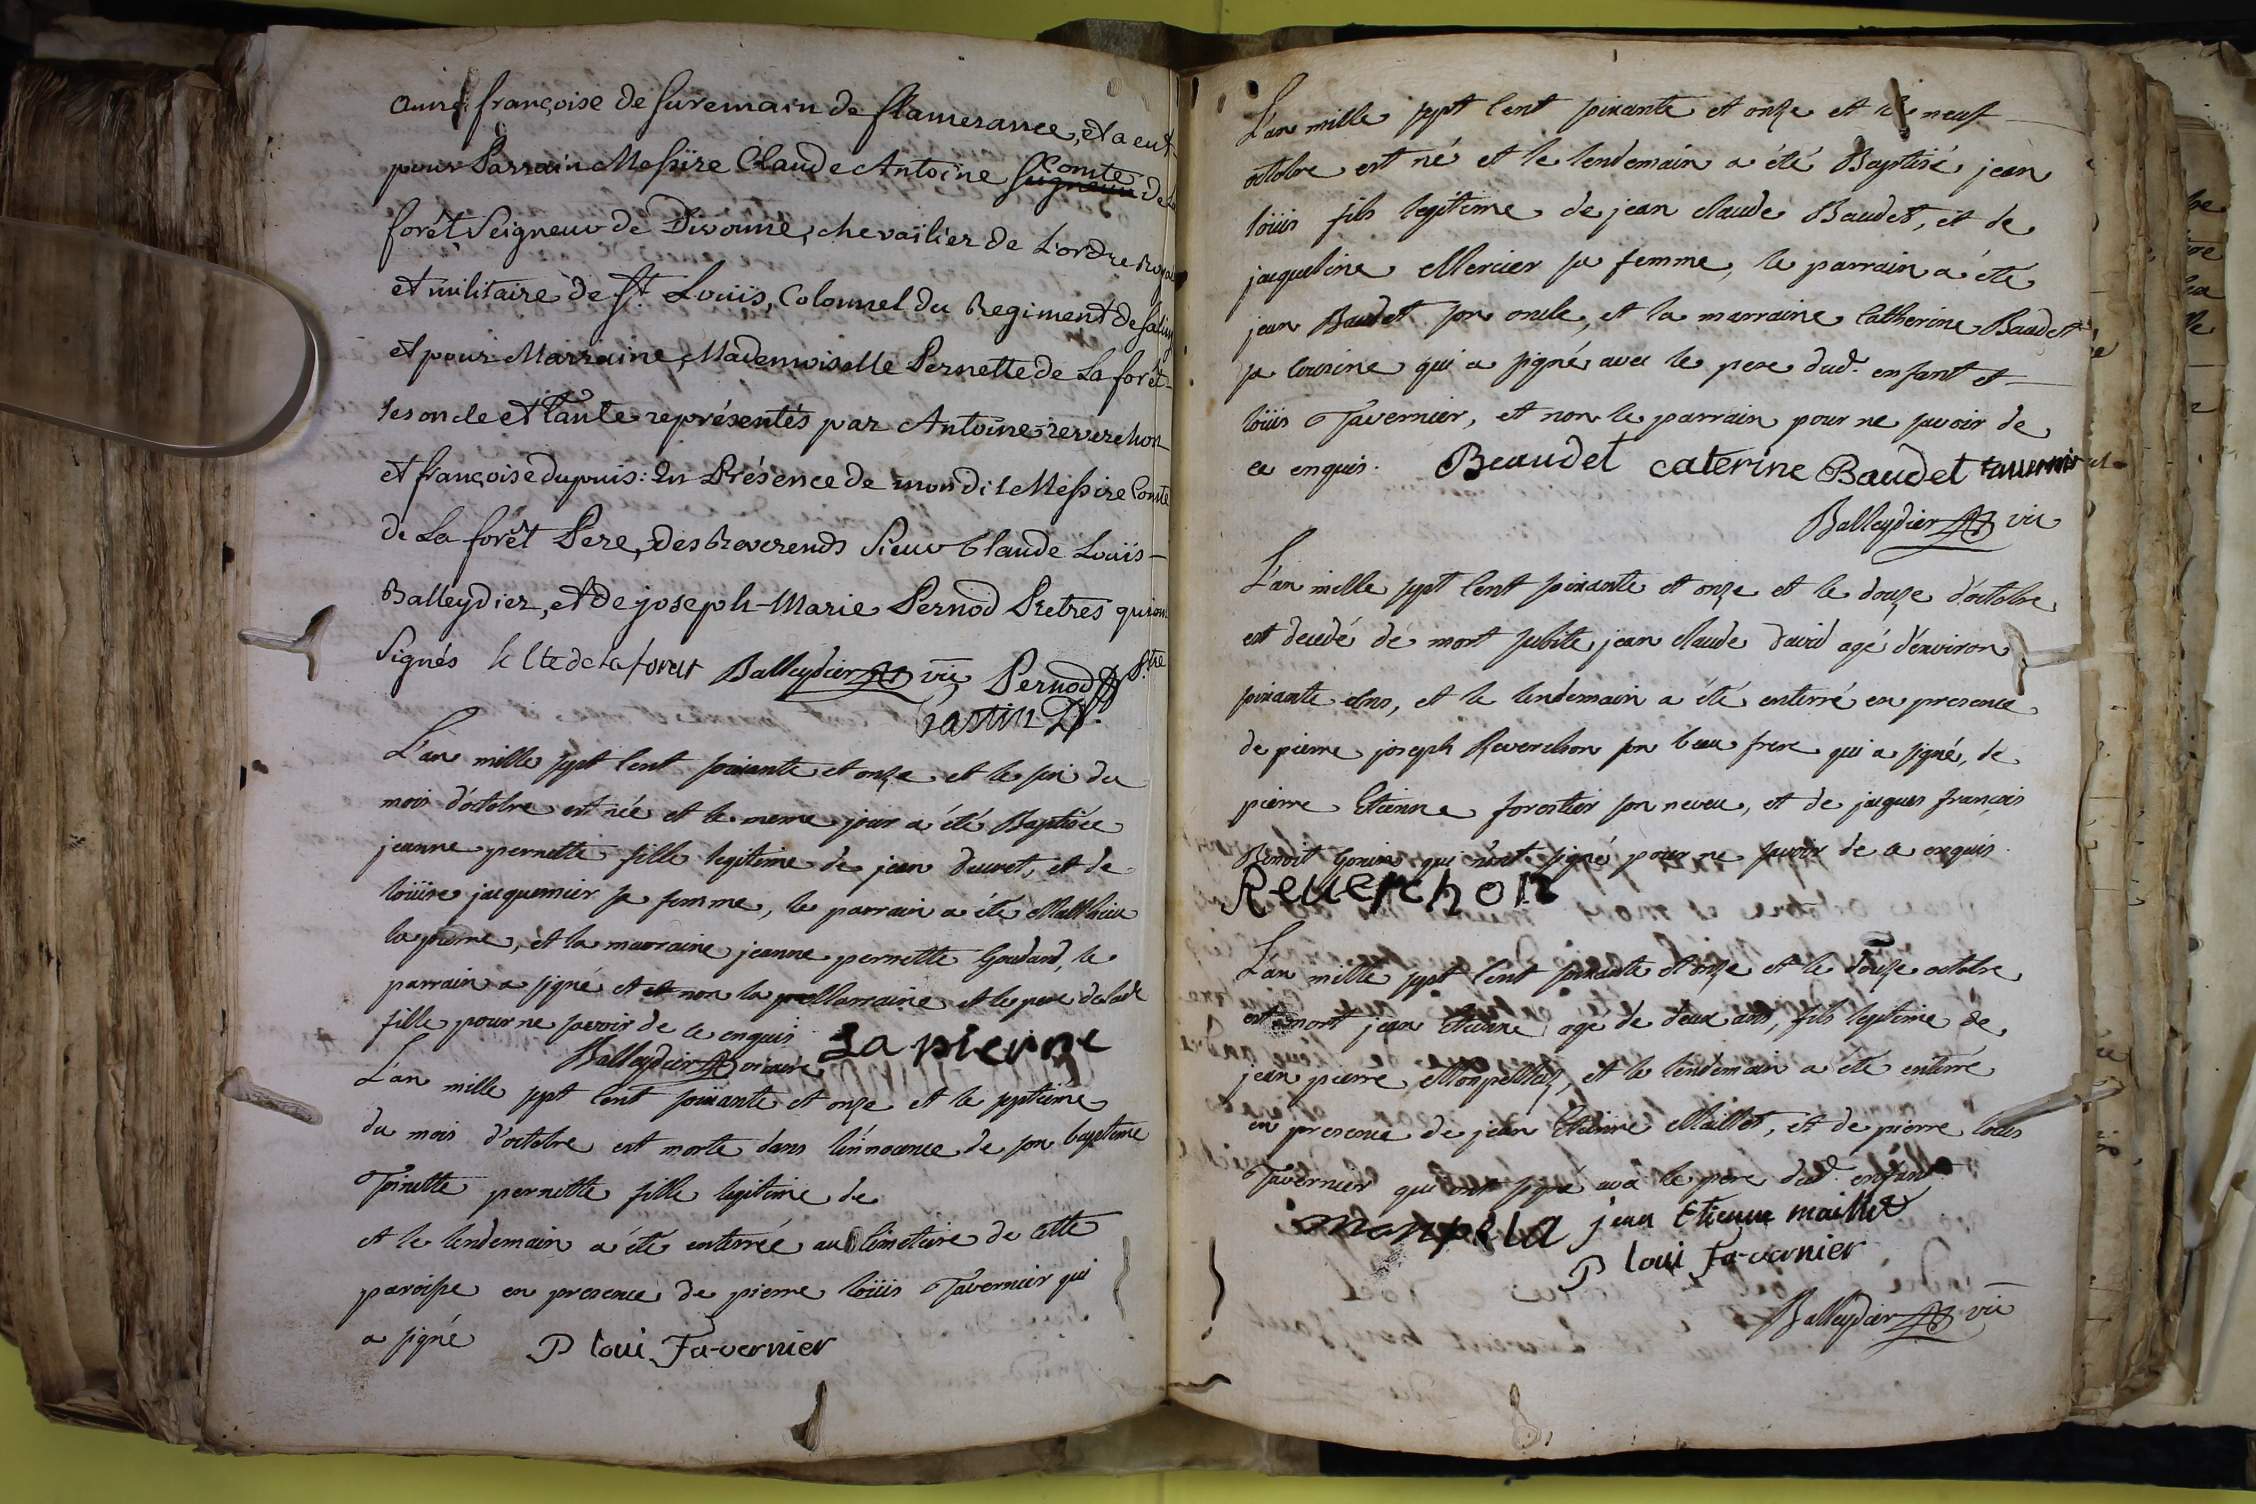 anne françoise de suremain de flamerance, et a eut
pour Parrain Messire Claude Antoine Comte de La
forêt Seigneur de Divonne, chevallier de L'ordre Royal
et militaire de St. Louïs, Colonnel du Regiment de
et pour Marraine, Mademoiselle Pernette de La forêt
ses oncle et tante représentés par Antoine reverchon
et françoise dupuis: En Présence de mondit Messire Comte
de La forêt Pere, des Reverends Sieur Claude Louïs
Balleydier, et de joseph-Marie Pernod Prêtres qui ont
Signés le Cte de la forest Balleydier vic Pernod Ptre
L'an mille sept cent soixante et onze et le six du
mois d'octobre est née et le meme jour a été Baptisée
jeanne pernette fille legitime de jean ducret, et de
loüise jacquemier sa femme, le parrain a été Matthieu
la pierre, et la marraine jeanne pernette Goudard, le
parrain a signé et et non la Marraine et le pere de lade
fille pour ne savoir de ce enquis
Balleydier vicaire La pierre
L'an mille sept cent soixante et onze et le septieme
du mois d'octobre est morte dans l'innocence de son bapteme
Toinette pernette fille legitime de
et le lendemain a été enterrée au Cimetiere de cette
paroisse en presence de pierre loüis Tavernier qui
a signé P loui Ta-vernier
L'an mille sept cent soixante et onze et le neuf
octobre est né et le lendemain a été Baptisé jean
loüis fils legitime de jean claude Baudet, et de
jaqueline Mercier sa femme, le parrain a été
jean Baudet son oncle, et la marraine Catherine Baudet
sa cousine qui a signé avec le pere dud. enfant et
loüis Tavernier, et non le parrain pour ne savoir de
ce enquis. Beaudet caterine Baudet tavernier
Balleydier vic
L'an mille sept cent soixante et onze et le douze d'octobre
est decedé de mort subite jean claude david agé d'environ
soixante ans, et le lendemain a été enterré en presence
de pierre joseph Reverchon son beau frere qui a signé, de
pierre Etienne forestier son neveu, et de jaques françois
Benoit Gonin qui n'ont signé pour ne savoir de ce enquis.
Reuerchon
L'an mille sept cent soixante et onze et le douze octobre
est mort jean Etienne agé de deux ans, fils legitime de
jean pierre Monpellaz, et le lendemain a été enterré
en presence de jean Etienne Maillet, et de pierre louis
Tavernier qui ont signé avec le pere dud. enfant
monpela jean Etienne maillet
P loui Ta-vernier
Balleydier vic